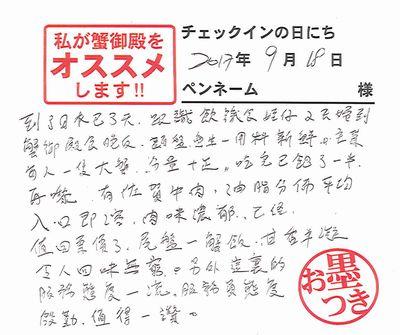 私が蟹御殿を
オススメ
します!!
チェックインの日にち
2017年 9月 18日
ペンネーム 様
到了日本已3天
蟹御殿食晚飯 用料新鮮
每人一隻大蟹 份量十足 吃完已飽了一半
再嚟 有佐賀牛肉 油脂分佈平均
入口即溶 肉味濃郁
值回票價了 尾盤一蟹飯
令人回味無窮 另外 這裏的
服務態度一流 服務員態度
殷勤 值得一讚。
お墨つき